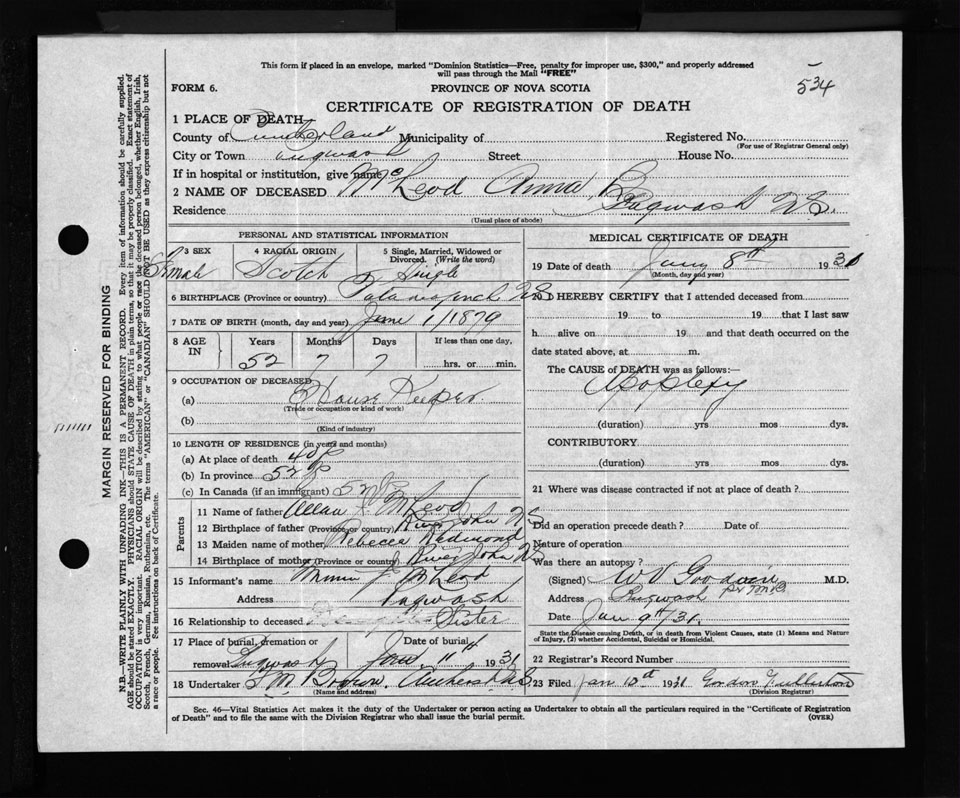 This form if placed in an envelope, marked "Dominion Statistics—Free, penalty for improper use, $300," and properly addressed
will pass through the Mail "FREE"
534
FORM 6.
PROVINCE OF NOVA SCOTIA
CERTIFICATE OF REGISTRATION OF DEATH
1 PLACE OF DEATH
County of Cumberland Municipality of
Registered No.
(For use of Registrar General only)
City or Town Pugwash Street House No.
If in hospital or institution, give name
2 NAME OF DECEASED McLeod Anna B.
Residence Pugwash N.S.
(Usual place of abode)
PERSONAL AND STATISTICAL INFORMATION
3 SEX 4 RACIAL ORIGIN 5 Single, Married, Widowed or
Divorced. (Write the word)
Female Scotch Single
6 BIRTHPLACE (Province or country) N.S.
7 DATE OF BIRTH (month, day and year) June 1/1879
8 AGE IN Years Months Days If less than one day,
52 7 7 hrs. or min.
9 OCCUPATION OF DECEASED
(a) House Keeper.
(Trade or occupation or kind of work)
(b)
(Kind of industry)
10 LENGTH OF RESIDENCE (in years and months)
(a) At place of death 40
(b) In province 52
(c) In Canada (if an immigrant) 52
Parents
11 Name of father Allan McLeod
12 Birthplace of father (Province or country) River John N.S.
13 Maiden name of mother Rebecca Redmond
14 Birthplace of mother (Province or country) River John N.S.
15 Informant's name J McLeod
Address Pugwash
16 Relationship to deceased Sister
17 Place of burial, cremation or Date of burial
removal Pugwash Jan 11th 1931
18 Undertaker M. Brown. Amherst N.S.
(Name and address)
MEDICAL CERTIFICATE OF DEATH
19 Date of death Jany 8th 1931
(Month, day and year)
20 I HEREBY CERTIFY that I attended deceased from
19 to 19 that I last saw
h alive on 19 and that death occurred on the
date stated above, at m.
The CAUSE of DEATH was as follows:—
Apoplexy
(duration) yrs mos dys.
CONTRIBUTORY
(duration) yrs mos dys.
21 Where was disease contracted if not at place of death?
Did an operation precede death? Date of
Nature of operation
Was there an autopsy?
(Signed) W V Goodwin M.D.
Address Pugwash
Date Jan 9th/31.
State the Disease causing Death, or in death from Violent Causes, state (1) Means and Nature
of Injury, (2) whether Accidental, Suicidal or Homicidal.
22 Registrar's Record Number
23 Filed Jan 10th 1931 Gordon Fullerton
(Division Registrar)
Sec. 46—Vital Statistics Act makes it the duty of the Undertaker or person acting as Undertaker to obtain all the particulars required in the "Certificate of Registration
of Death" and to file the same with the Division Registrar who shall issue the burial permit.
(OVER)
MARGIN RESERVED FOR BINDING
N.B.—WRITE PLAINLY WITH UNFADING INK—THIS IS A PERMANENT RECORD. Every item of information should be carefully supplied.
AGE should be stated EXACTLY. PHYSICIANS should STATE CAUSE OF DEATH in plain terms, so that it may be properly classified. Exact statement of
OCCUPATION is very important. RACIAL ORIGIN will be described by stating to what people or race the deceased person belonged, whether English, Irish,
Scotch, French, German, Russian, Ruthenian, etc. The terms "AMERICAN" or "CANADIAN" SHOULD NOT BE USED as they express citizenship but not
a race or people. See instructions on back of Certificate.